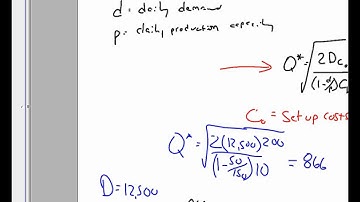 d = daily demand
p = daily production capacity
Q* = √(2DCo / (1-d/p)C
Co = Set up costs
Q* = √(2(12,500)200 / (1-50/150)10) = 866
D = 12,500